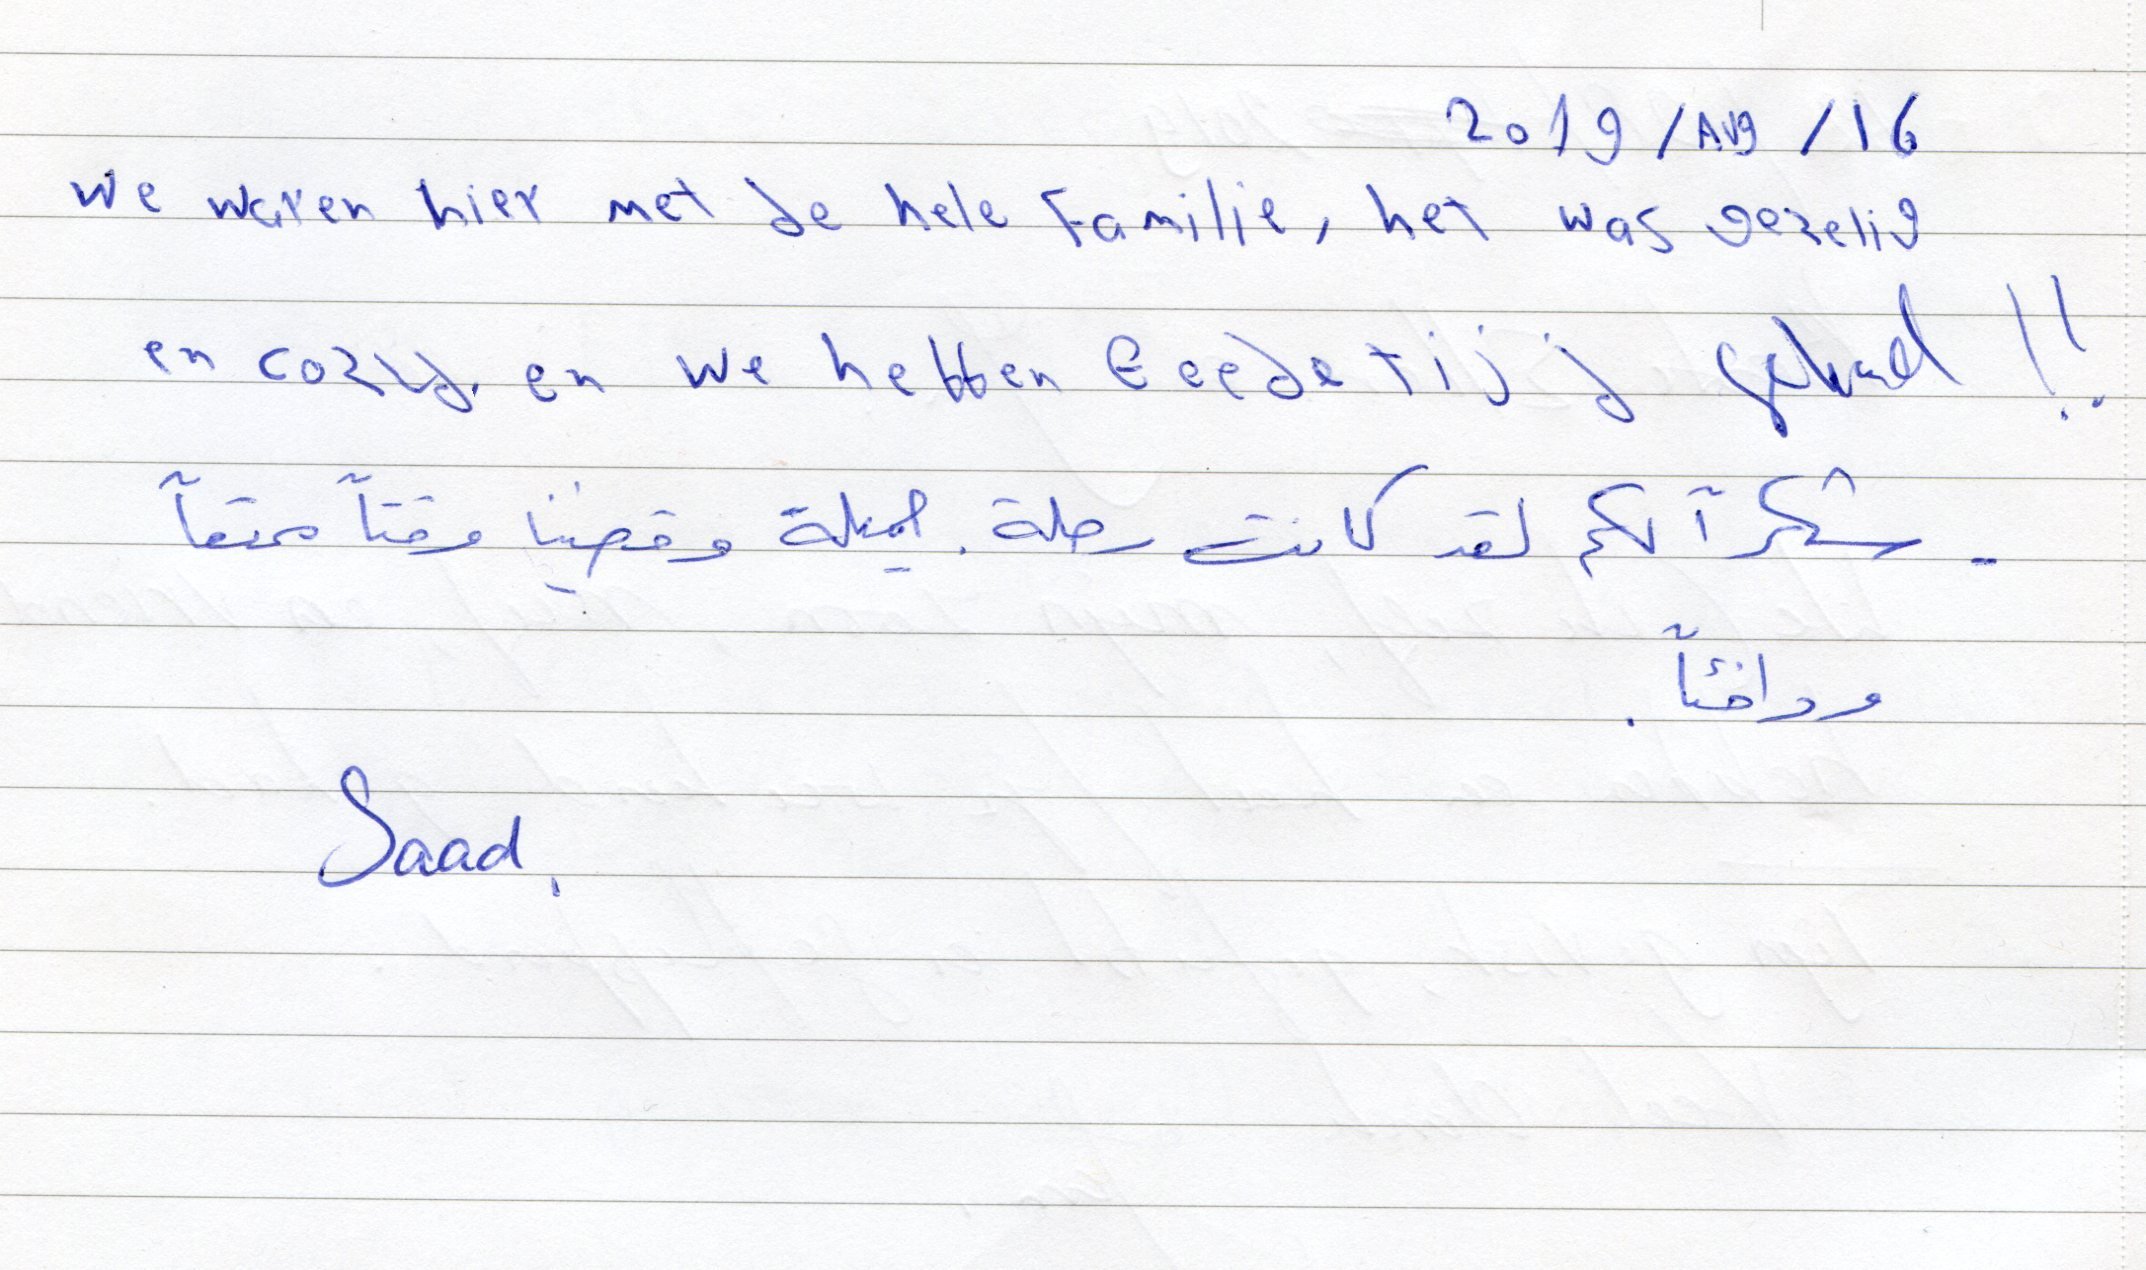 2019/Aug/16
We waren hier met de hele Familie, het was gezelig
en cozy. en we hebben Goede tijd gehad !!
- شكراً لكم لقد كانت رحلة جميلة وقضينا وقتاً ممتعاً
ودافئاً.
Saad.